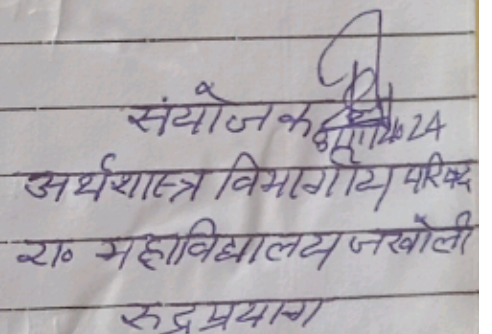 संयोजक
अर्थशास्त्र विभागीय परिषद
रा० महाविद्यालय जखोली
रुद्रप्रयाग